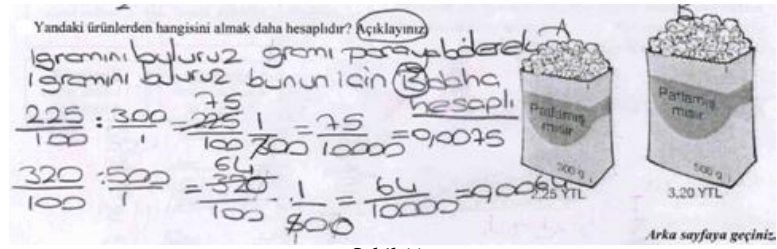 Yandaki ürünlerden hangisini almak daha hesaplıdır? Açıklayınız.
1gramını buluruz gramı paraya bölerek
1gramını buluruz bunun için B daha
hesaplı
225/100 : 300/1 = 75 225/100 · 1/300 = 75/10000 = 0,0075
320/100 : 500/1 = 64 320/100 · 1/500 = 64/10000 = 0,0064
A
Patlamış
mısır
300 g
2,25 YTL
B
Patlamış
mısır
500 g
3,20 YTL
Arka sayfaya geçiniz.